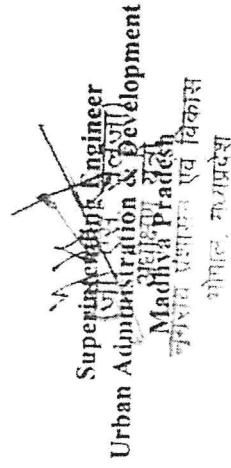 Superintending Engineer
Urban Administration & Development
अधीक्षण यंत्री
Madhya Pradesh
नगरीय प्रशासन एवं विकास
भोपाल, मध्यप्रदेश